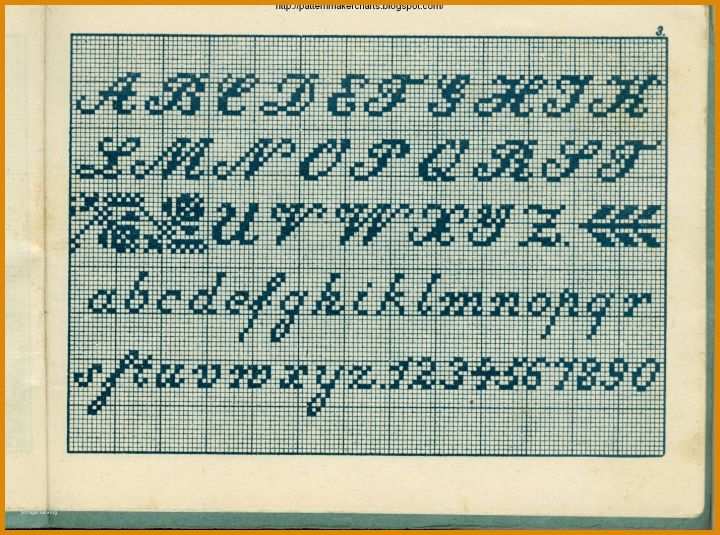 http://patternmakercharts.blogspot.com/
3.
A B C D E F G H I K
L M N O P Q R S T
U V W X Y Z.
a b c d e f g h i k l m n o p q r
s ſ t u v w x y z. 1 2 3 4 5 6 7 8 9 0